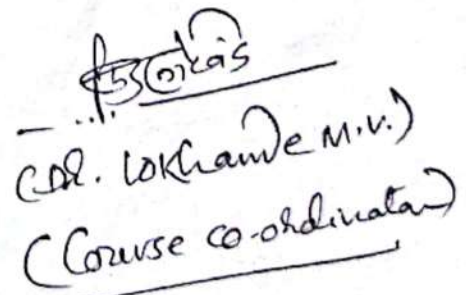 (DR. Lokhande M.V.)
(Course co-ordinator)